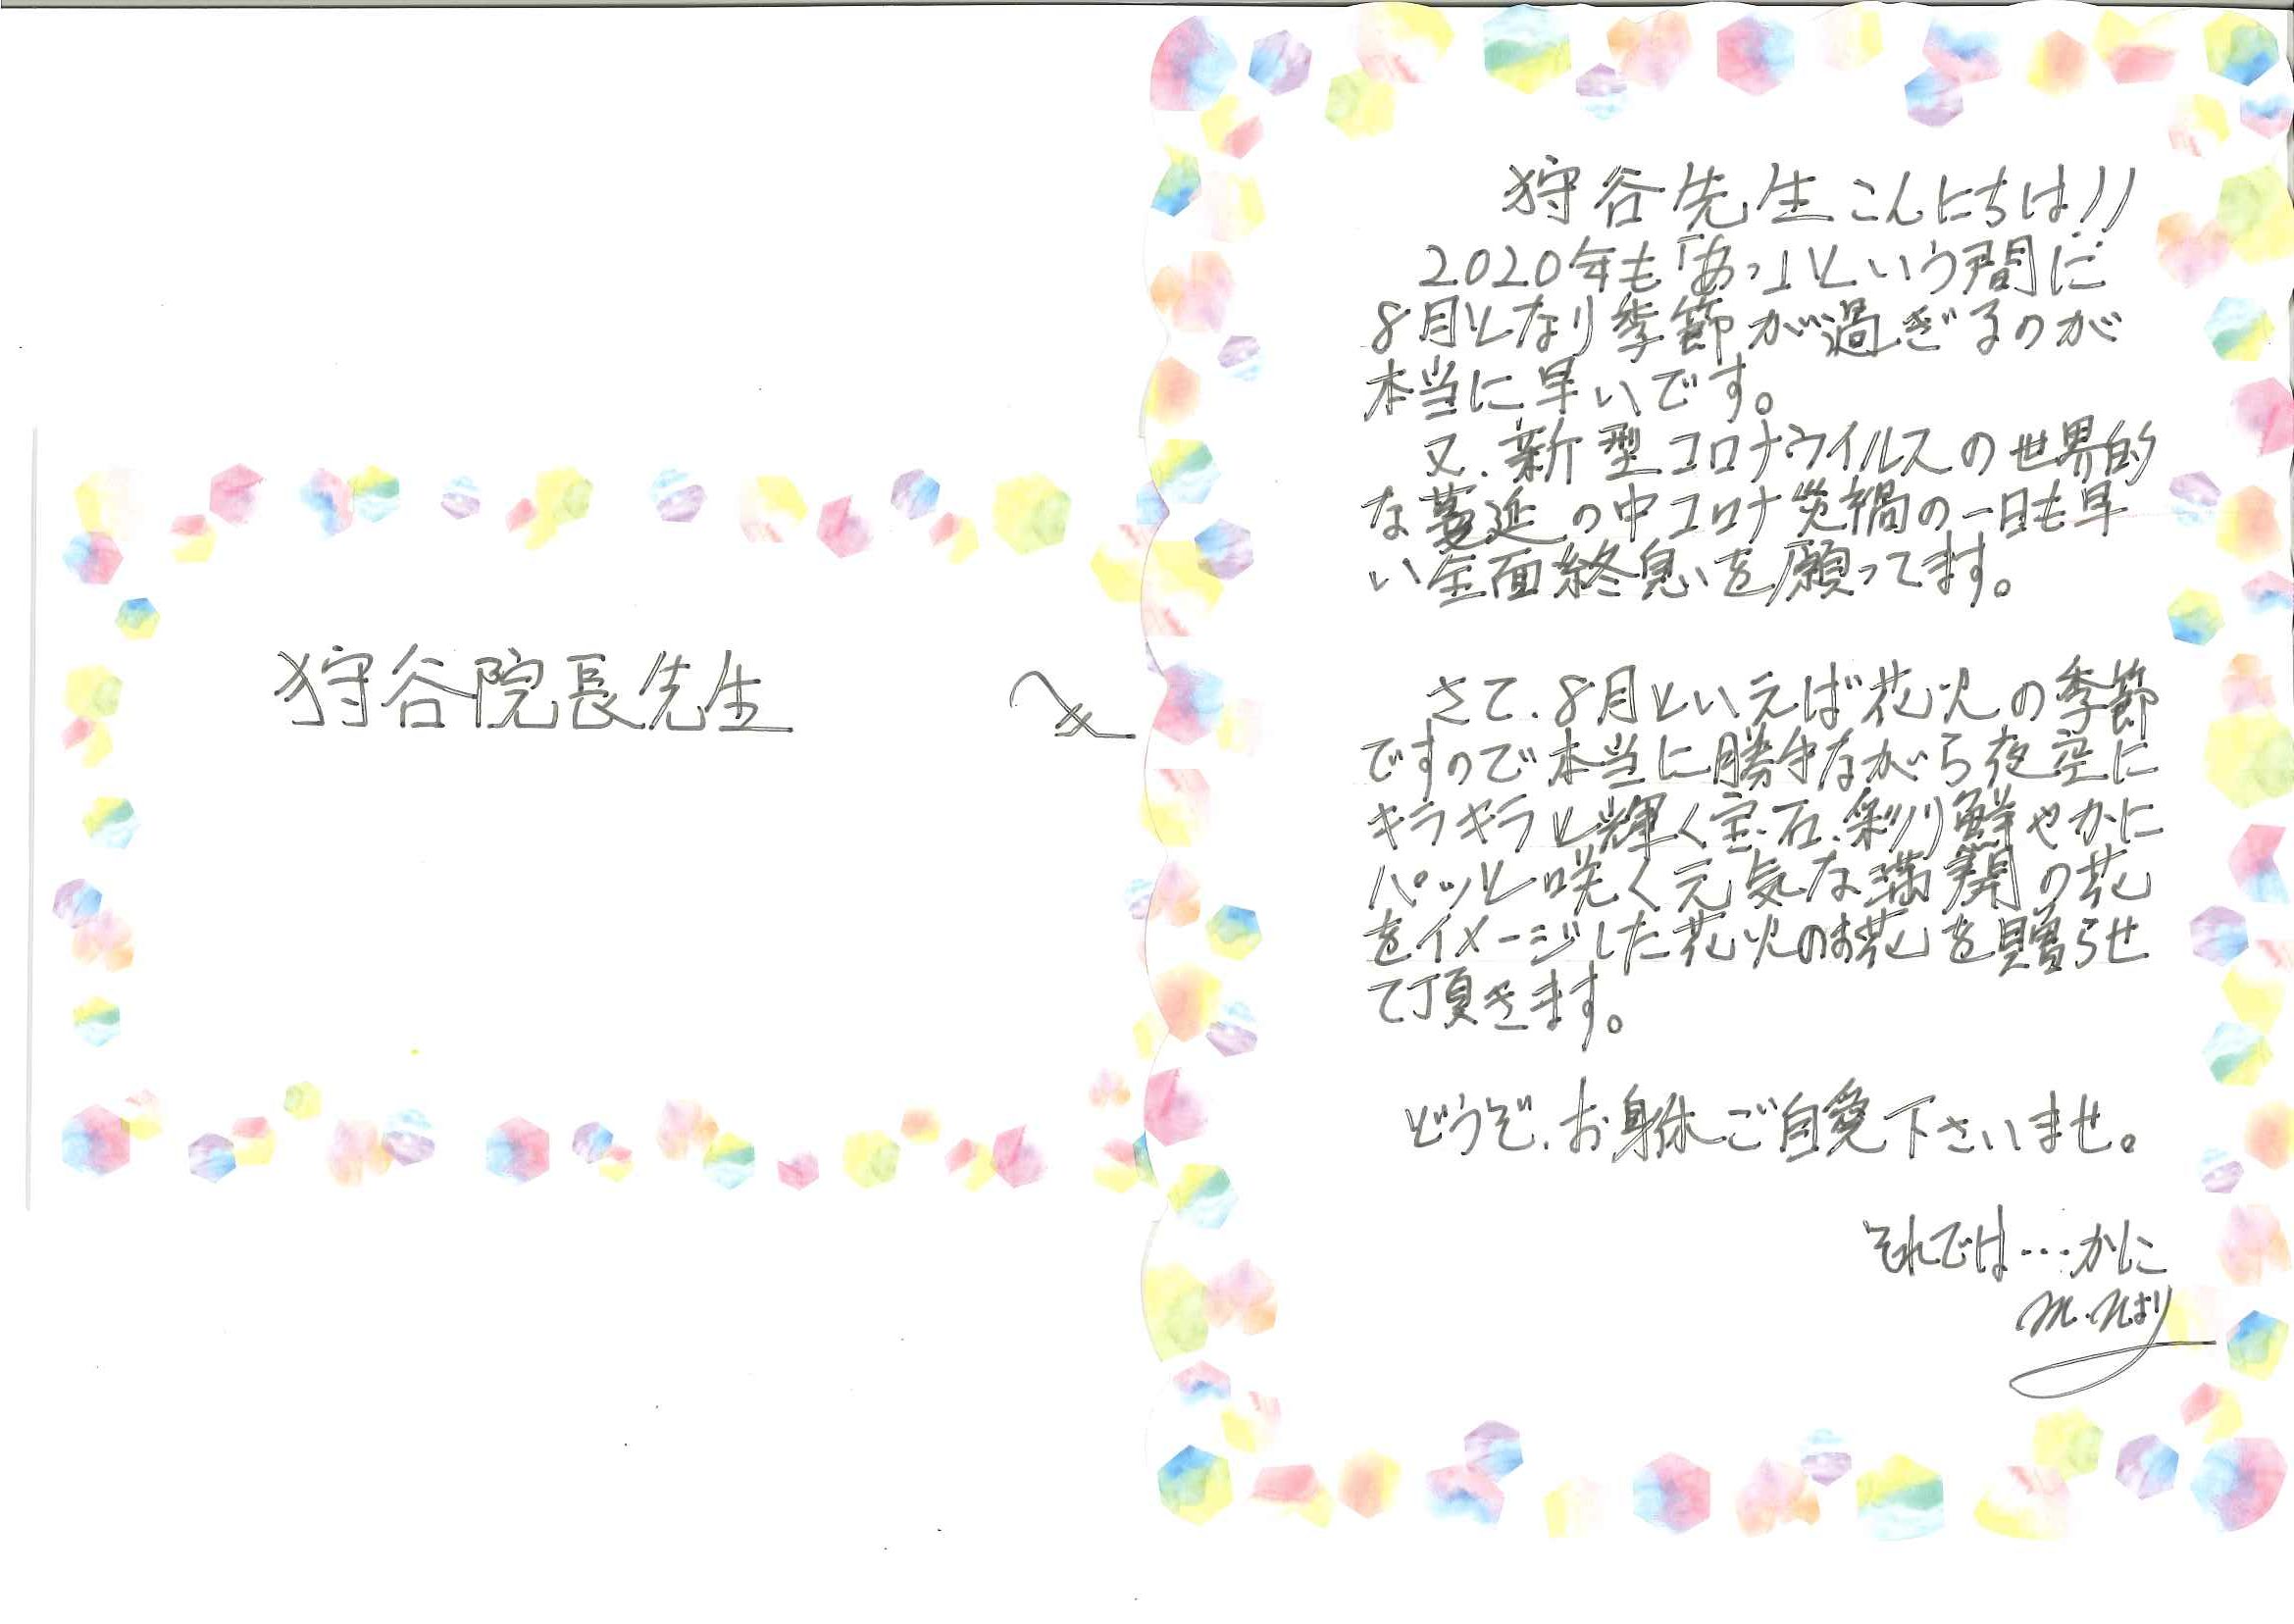 狩谷院長先生
狩谷先生こんにちは!!
2020年も「あっ」という間に
8月となり季節が過ぎるのが
本当に早いです。
又、新型コロナウイルスの世界的
な蔓延の中コロナ災禍の一日も早
い全面終息を願ってます。
さて、8月といえば花火の季節
ですので本当に勝手ながら夜空に
キラキラと輝く宝石、彩り鮮やかに
パッと咲く元気な満開の花
をイメージした花火のお花を贈らせ
て頂きます。
どうぞ、お身体ご自愛下さいませ。
それでは…かしこ